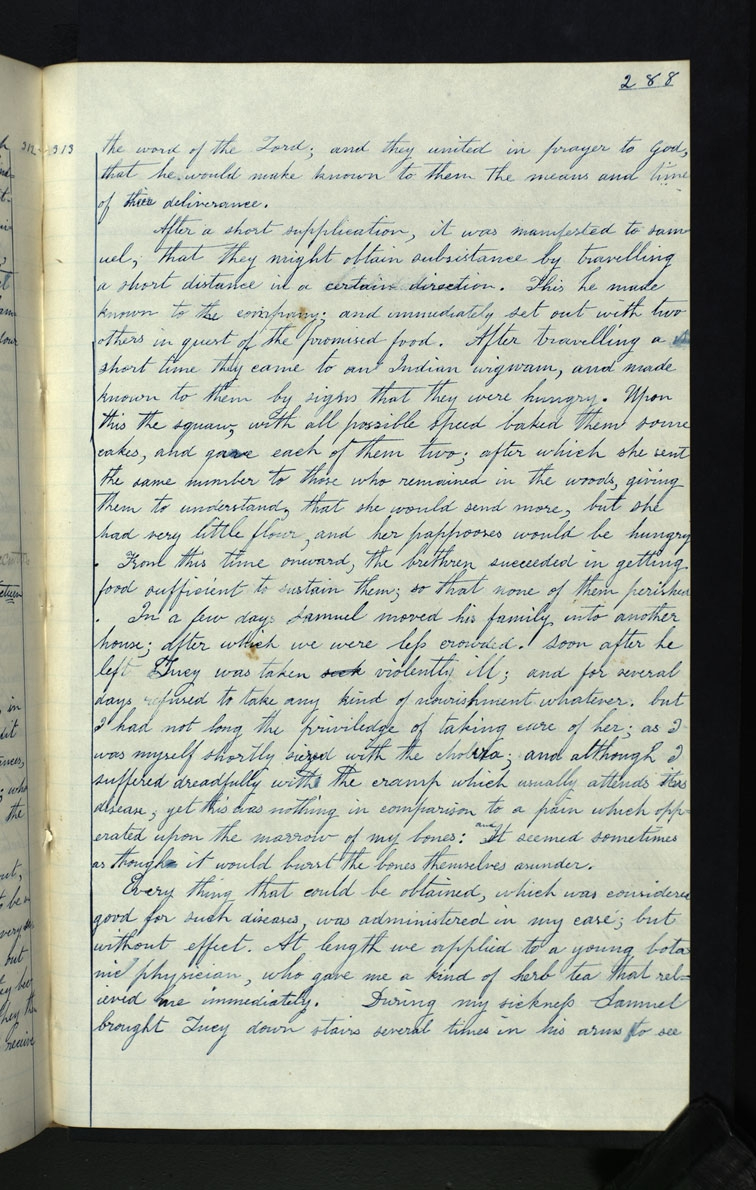 288
312-313
the word of the Lord; and they united in prayer to God,
that he would make known to them the means and time
of their deliverance.
After a short supplication, it was manifested to Sam
uel, that they might obtain subsistance by travelling
a short distance in a certain direction. This he made
known to the company; and immediately set out with two
others in quest of the promised food. After travelling a
short time they came to an Indian wigwam, and made
known to them by signs that they were hungry. Upon
this the squaw, with all possible speed baked them some
cakes, and gave each of them two; after which she sent
the same number to those who remained in the woods, giving
them to understand, that she would send more, but she
had very little flour, and her pappooses would be hungry
. From this time onward, the brethren succeeded in getting
food sufficient to sustain them; so that none of them perished
. In a few days Samuel moved his family into another
house; after which we were less crowded. Soon after he
left Lucy was taken sick violently ill; and for several
days refused to take any kind of nourishment whatever. but
I had not long the priviledge of taking care of her; as I
was myself shortly siezed with the cholera; and although I
suffered dreadfully with the cramp which usually attends this
disease; yet this was nothing in comparison to a pain which opp-
erated upon the marrow of my bones: and It seemed sometimes
as though it would burst the bones themselves asunder.
Every thing that could be obtained, which was considered
good for such diseases, was administered in my case; but
without effect. At length we applied to a young bota
nic physician, who gave me a kind of herb tea that rel-
ieved me immediately. During my sickness Samuel
brought Lucy down stairs several times in his arms to see